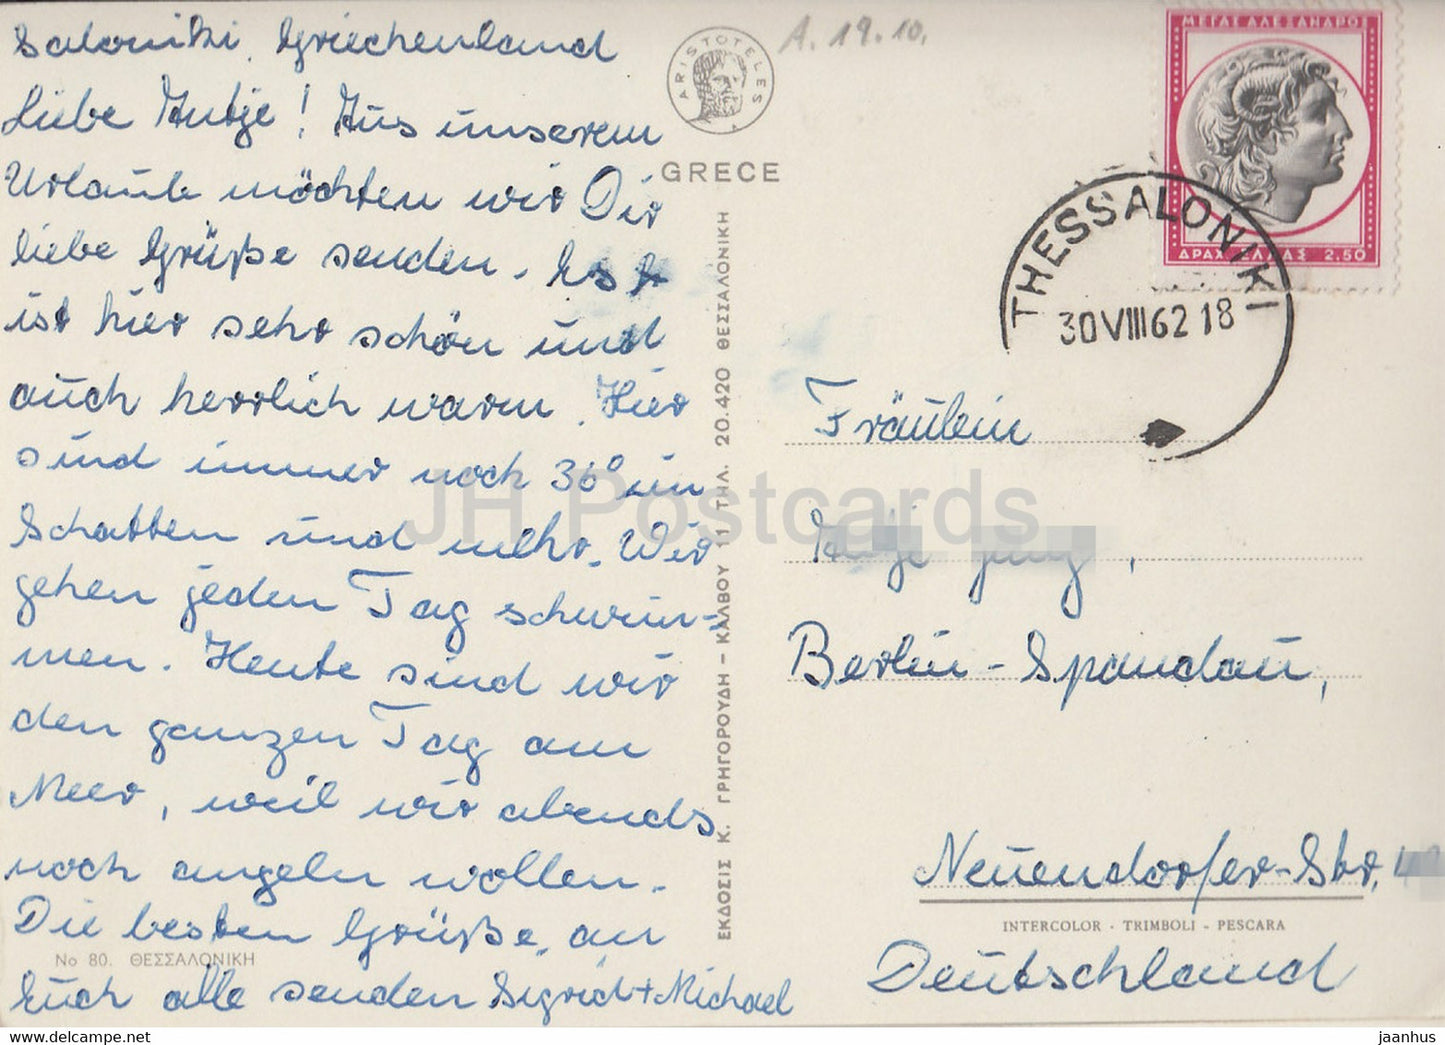 Saloniki, Griechenland
Liebe Antje! Aus unserem
Urlaub möchten wir Dir
liebe Grüße senden. Es
ist hier sehr schön und
auch herrlich warm. Hier
sind immer noch 36° im
Schatten und mehr. Wir
gehen jeden Tag schwim=
men. Heute sind wir
den ganzen Tag am
Meer, weil wir abends
noch angeln wollen.
Die besten Grüße an
Euch alle senden Sigrid + Michael
No 80. ΘΕΣΣΑΛΟΝΙΚΗ
ARISTOTELES
GRECE
A. 19.10.
ΕΚΔΟΣΙΣ Κ. ΓΡΗΓΟΡΟΥΔΗ – ΚΑΛΒΟΥ 11 ΤΗΛ. 20.420 ΘΕΣΣΑΛΟΝΙΚΗ
ΜΕΓΑΣ ΑΛΕΞΑΝΔΡΟΣ
ΔΡΑΧ. ΕΛΛΑΣ 2.50
THESSALONIKI
30VIII62 18
Fräulein
Berlin-Spandau,
Neuendorfer-Str.
INTERCOLOR · TRIMBOLI - PESCARA
Deutschland
JH Postcards
www.jaanhus-postcards.com
jaanhus